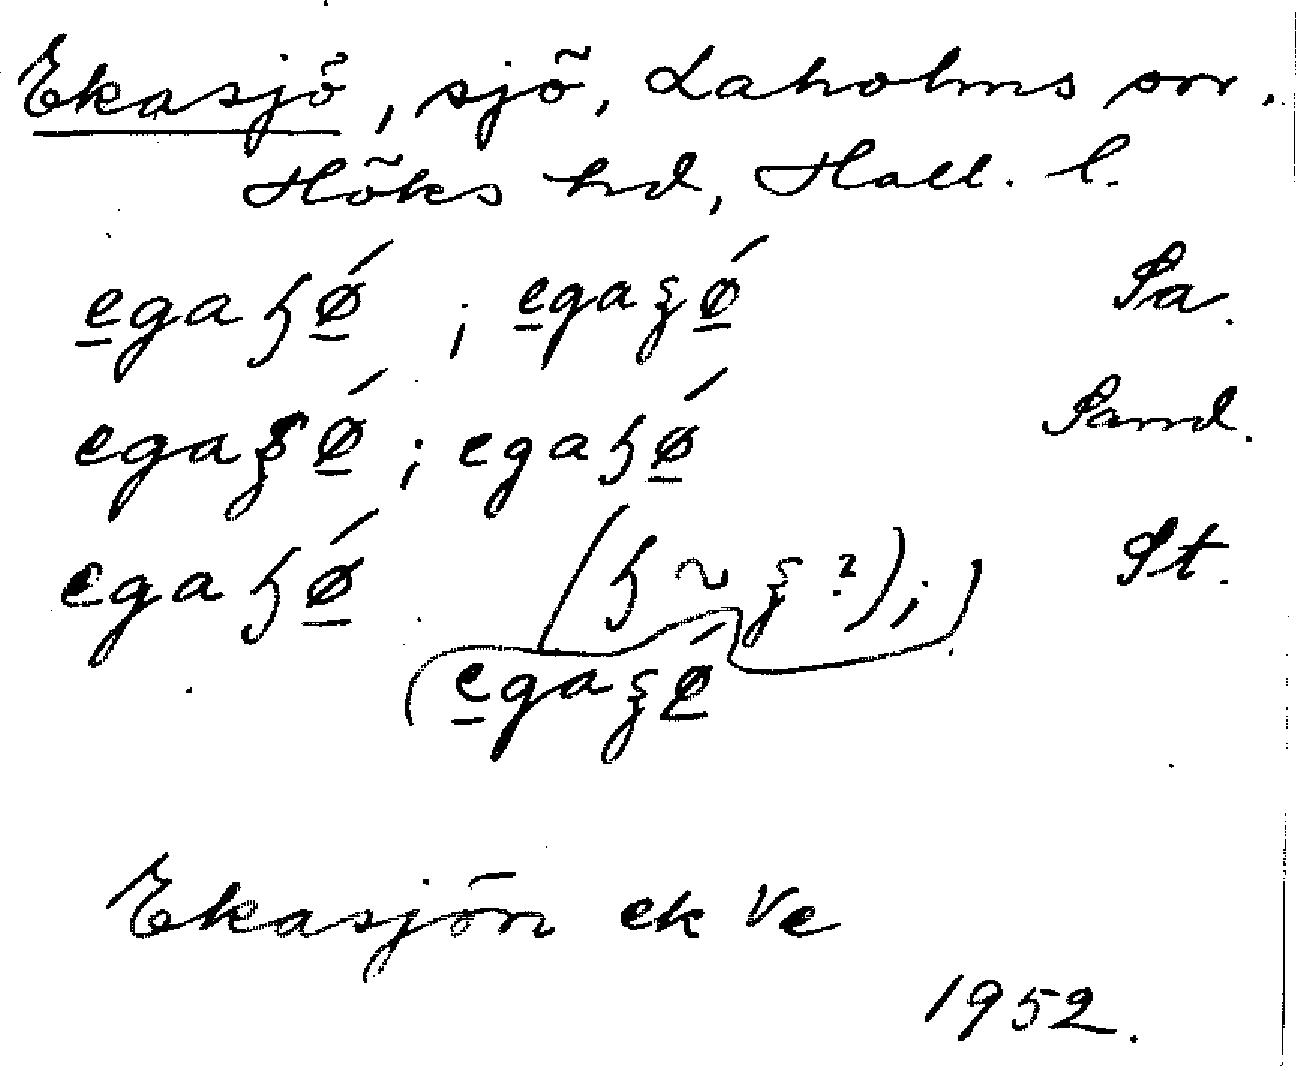 Ekasjö, sjö, Laholms sn.
Höks hd, Hall. l.
e̲gaɧǿ̲ ; e̲gaʒǿ̲ Pa.
egaʒǿ̲ ; egaɧǿ̲ Sand.
egaɧǿ̲ (ɧ ~ ʒ ?); St.
e̲gaʒǿ̲
Ekasjön ek Ve
1952.